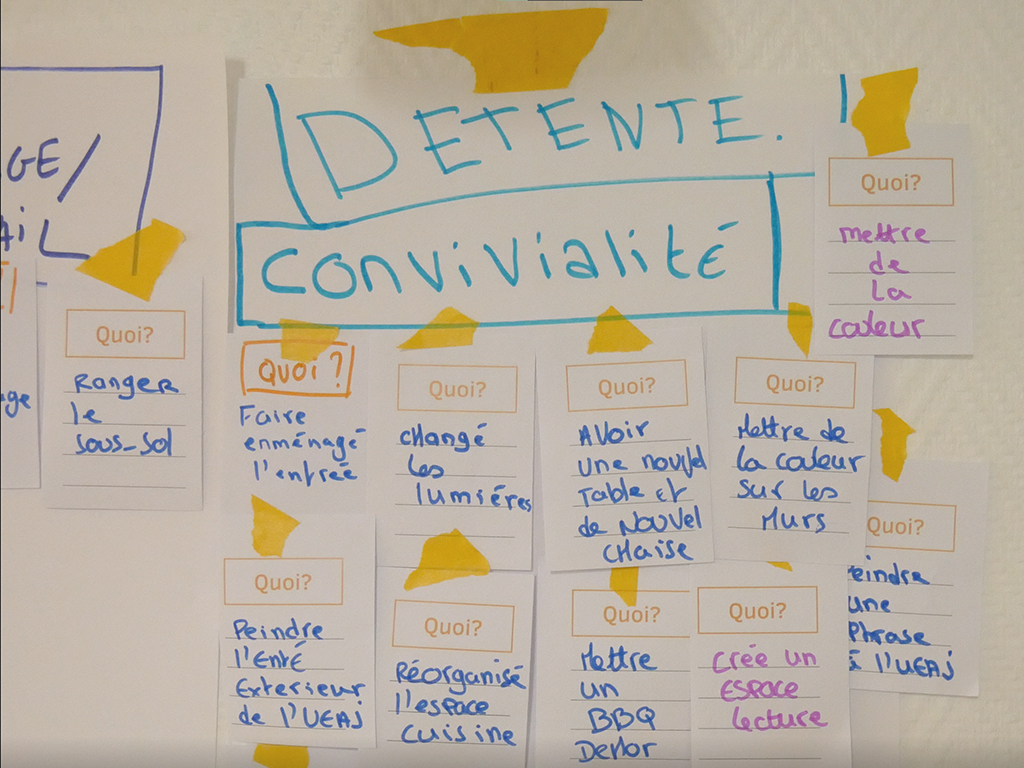 GE/
AIL
DETENTE.
CONVIVIALITÉ
Quoi?
mettre
de
la
couleur
ge
Quoi?
Ranger
le
sous-sol
QUOI ?
Faire
enménagé
l'entrée
Quoi?
changé
les
lumiéres
Quoi?
AVoir
une nouvel
Table et
de Nouvel
CHaise
Quoi?
Mettre de
la couleur
sur les
Murs
Quoi?
Peindre
l'Enté
Exterieur
de l'UEAJ
Quoi?
Réorganisé
l'espace
cuisine
Quoi?
Mettre
un
BBQ
Quoi?
crée un
ESPACE
lecture
Quoi?
eindre
une
Phrase
à l'UEAJ